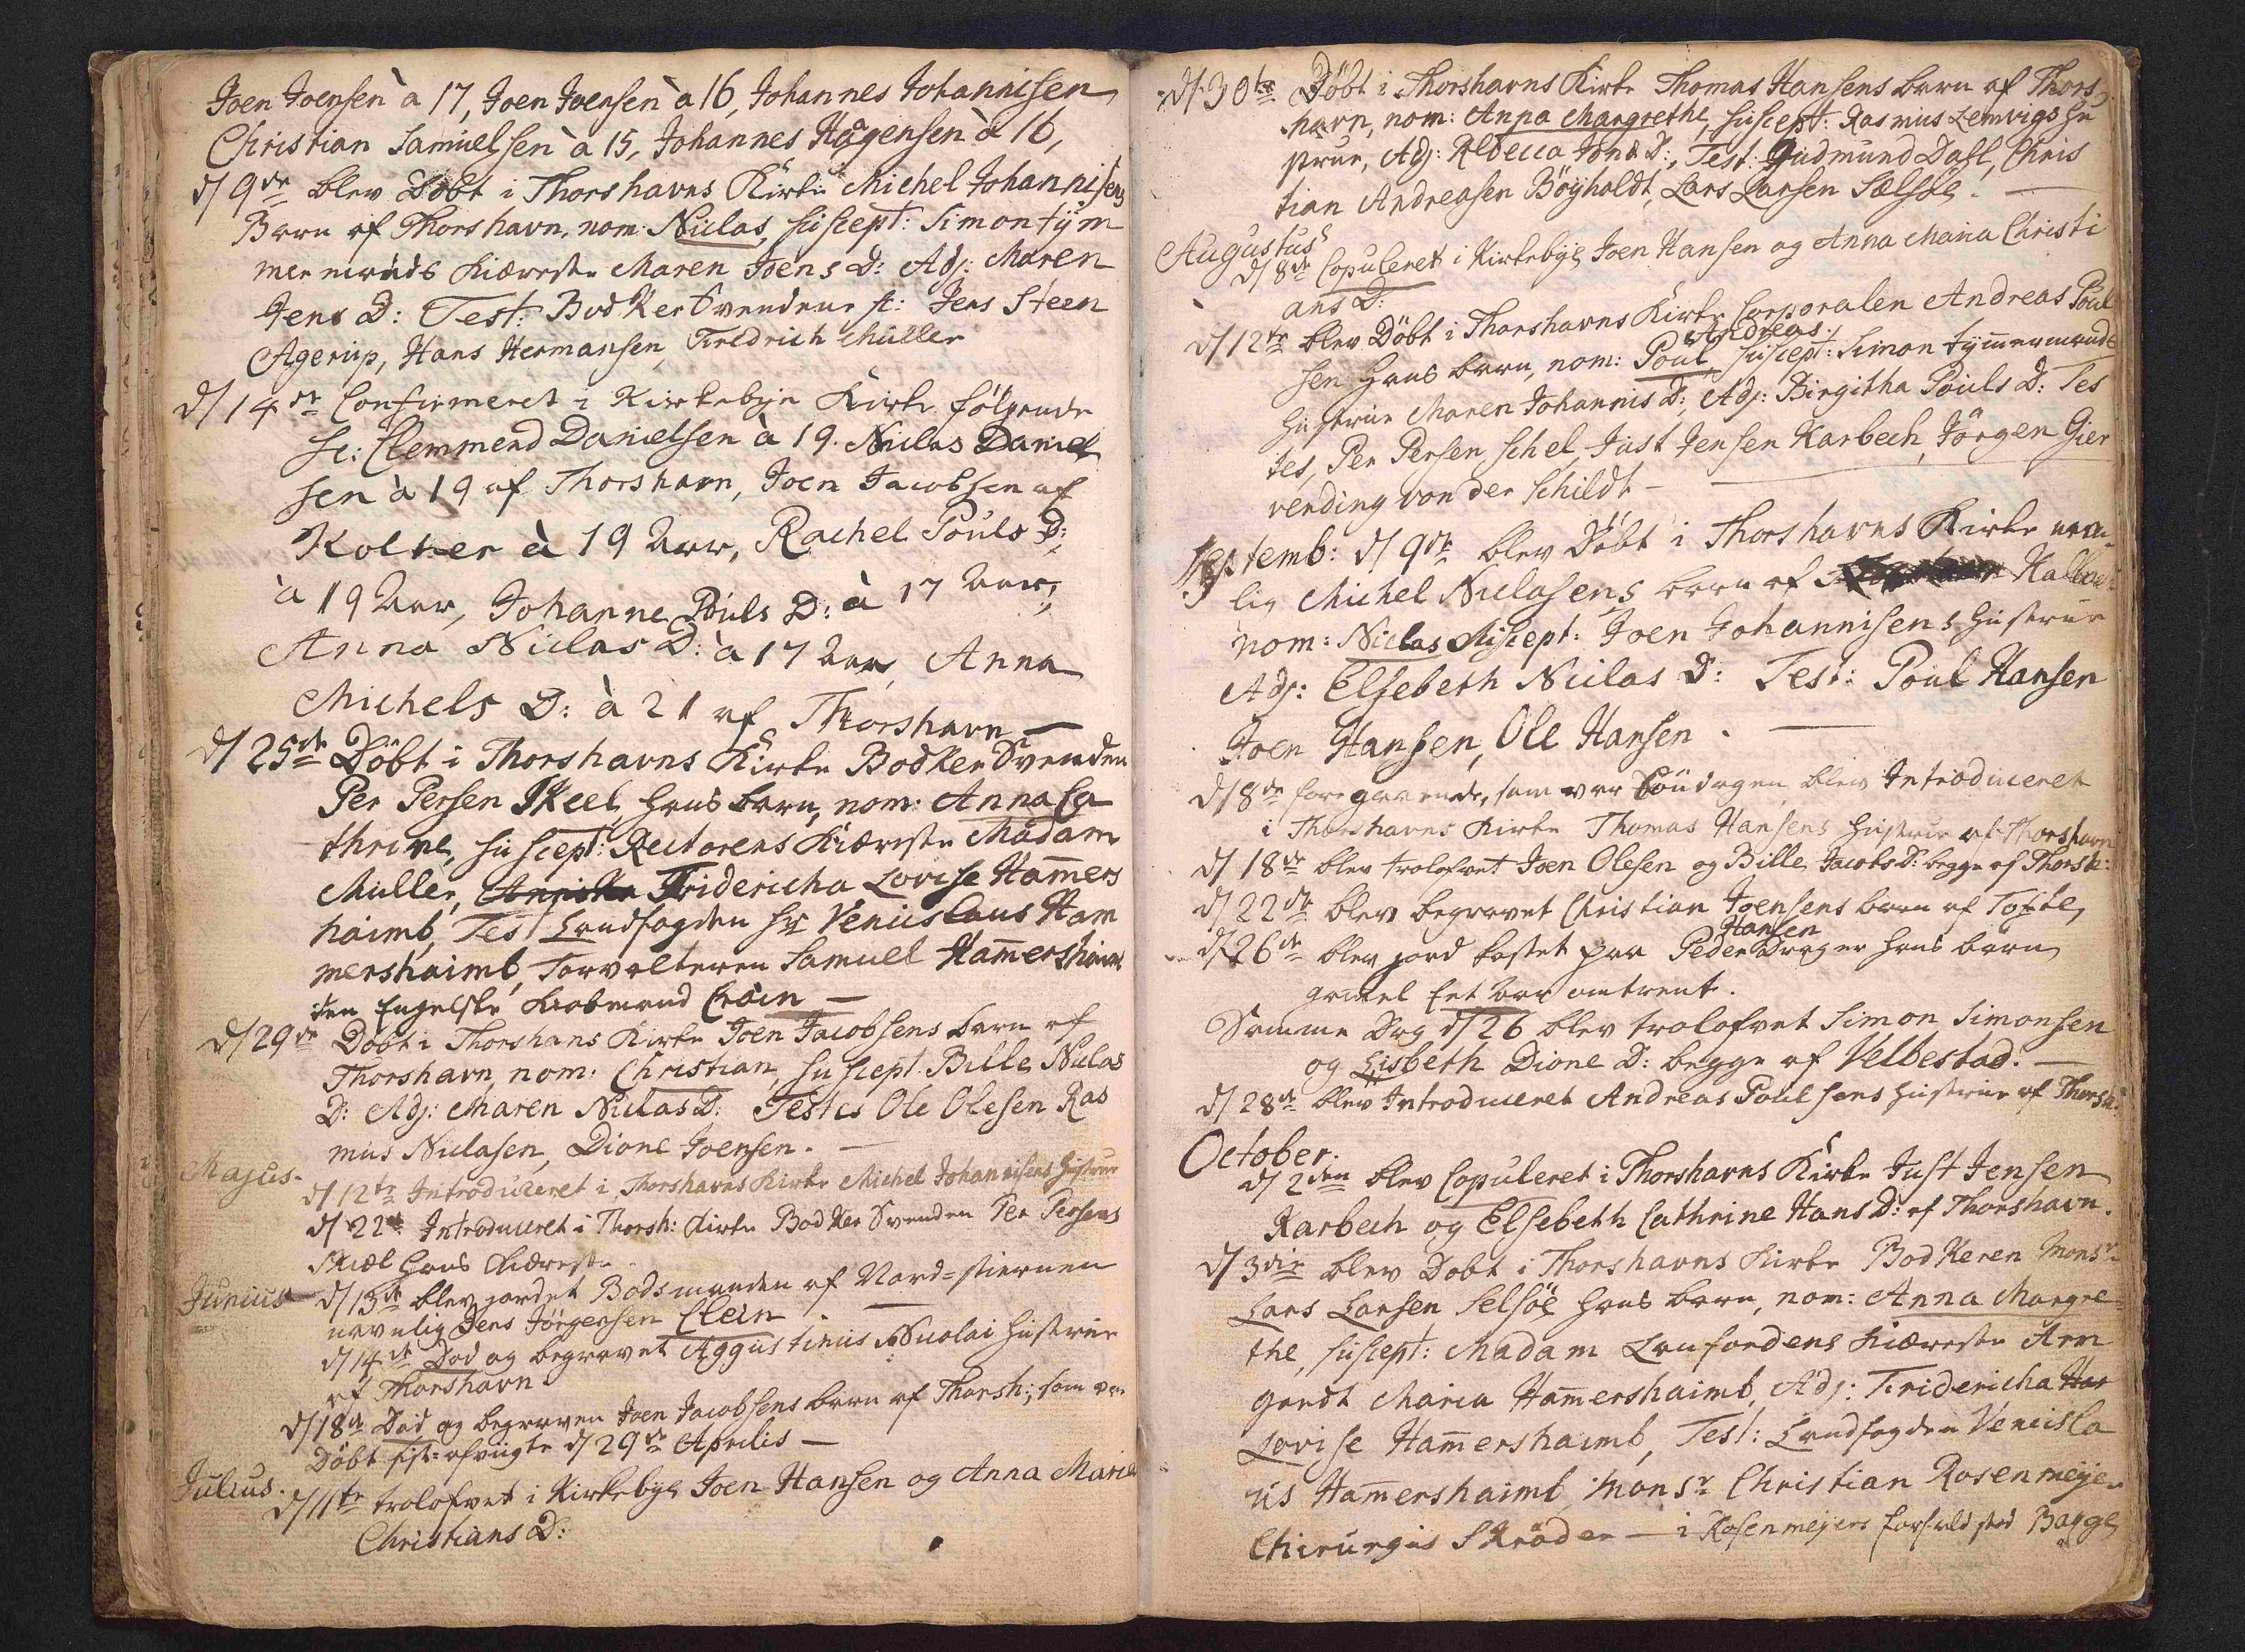 Joen Joensen à 17, Joen Joensen à 16, Johannes Johannisen
Christian Samuelsen à 15, Johannes Hågensen à 16,
d/ 9de blev Døbt i Thorshavns Kirke Michel Johannisens
Barn af Thorshavn, nom: Niclas, suscept: Simon tÿm
mermands Kiæreste Maren Joens D: Adj: Maren
Jens D: Test: Bodker Svendene sc: Jens Steen
Agerup, Hans Hermansen, Fredrich Müller
d/ 14de Confirmeret i Kirkebÿe Kirke følgende
sc: Clemmend Danielsen à 19. Niclas Daniel
sen à 19 af Thorshavn, Joen Jacobsen af
Kolter à 19 Aar, Rachel Pouls D:
à 19 Aar, Johanne Pouls D: à 17 Aar;
Anna Niclas D: à 17 Aar, Anna
Michels D: à 21 af Thorshavn —
d/ 25de Døbt i Thorshavns Kirke Bodker Svenden
Per Persen Skeel hans barn, nom: Anna Ca
thrine, suscept: Rectorens Kiæreste Madam
Müller, Fridericha Lovise Ham̅ers
haimb, Test Landfogden Hr Venceslaus Ham
mershaimb, Forvalteren Samuel Ham̅ershaimb
den Engelske Kiobmand Croin —
d/ 29de Døbt i Thorshans Kirke Joen Jacobsens barn af
Thorshavn, nom: Christian, suscept: Bille Niclas
D: Adj: Maren Niclas D: Testes Ole Olesen Ras
mus Niclasen, Dione Joensen. —
Majus.
d/ 12te Introduceret i Thorshavns Kirke Michel Johannisens Hustrue
d/ 22de Introduceret i Thorsh: Kirke Bodker Svenden Per Persens
Skiæl hans Kiæreste
Junius d/ 13de blev jordet Bodsmanden af Nord=stiernen
navnlig Jens Jörgensen Clein
d/ 14de Død og begravet Aggustinus Nicolai Hustrue
af Thorshavn
d/ 18de Død og begraven Joen Jacobsens barn af Thorsh:, som var
Døbt sist= afvigte d/ 29de Aprilis —
Julius.
d/ 11te trolofvet i Kirkebÿe Joen Hansen og Anna Maria
Christians D:
d/ 30te Døbt i Thorshavns Kirke Thomas Hansens barn af Thors
havn, nom: Anna Margrethe, suscept: Rasmus Lemvigs Hu
strue, Adj: Rebecca Jons D:, Test: Gudmund Dahl, Chris
tian Andreasen Böÿholdt, Lars Larsen Sælsöe. —
Augustus
d/ 8de Copuleret i Kirkebÿe Joen Hansen og Anna Maria Christi
ans D:
d/ 12te blev Døbt i Thorshavns Kirke Corporalen Andreas Poul
sen hans barn, nom: Poul Andreas, suscept: Simon tÿm̅ermands
Hustrue Maren Johannis D:, Adj: Birgitha Pouls D: Tes
tes, Per Persen Schel, Just Jensen Karbech, Jörgen Gier
vending von der Schildt —
Septemb: d/ 9de blev Døbt i Thorshavns Kirke nem=
lig Michel Niclasens barn af
nom: Niclas suscept: Joen Johannisens Hustrue
Adj: Elsebeth Niclas D: Test: Poul Hansen
Joen Hansen, Ole Hansen. —
d/ 8de foregaaende, som var Söndagen, blev Introduceret
i Thorshavns Kirke Thomas Hansens Hustrue af Thorshavn
d/ 18de blev trolofvet Joen Olesen og Bille Jacobs D: begge af Thorsh:
d/ 22de blev begravet Christian Joensens barn af Tofte,
d/ 26de blev jord kastet paa Peder Hansen Drager hans barn
gam̅el Eet Aar omtrent.
Samme Dag d/ 26 blev trolofvet Simon Simonsen
og Lisbeth Dione D: begge af Velbestad. —
d/ 28de blev Introduceret Andreas Poulsens Hustrue af Thorsh:
October.
d/ 2den blev Copuleret i Thorshavns Kirke Just Jensen
Karbech og Elsebeth Cathrine Hans D: af Thorshavn.
d/ 3die blev Døbt i Thorshavns Kirke Bodkeren Monsr.
Lars Larsen Selsöe hans barn, nom: Anna Margre=
the, suscept: Madam Kiæreste Arm
gardt Maria Ham̅ershaimb, Adj: Fridericha
Lovise Ham̅ershaimb, Test: Landfogden Vencisla
us Ham̅ershaimb, Monsr Christian Rosenmeÿer
Chirurgus Skröder — i Rosenmejers sted Bagge